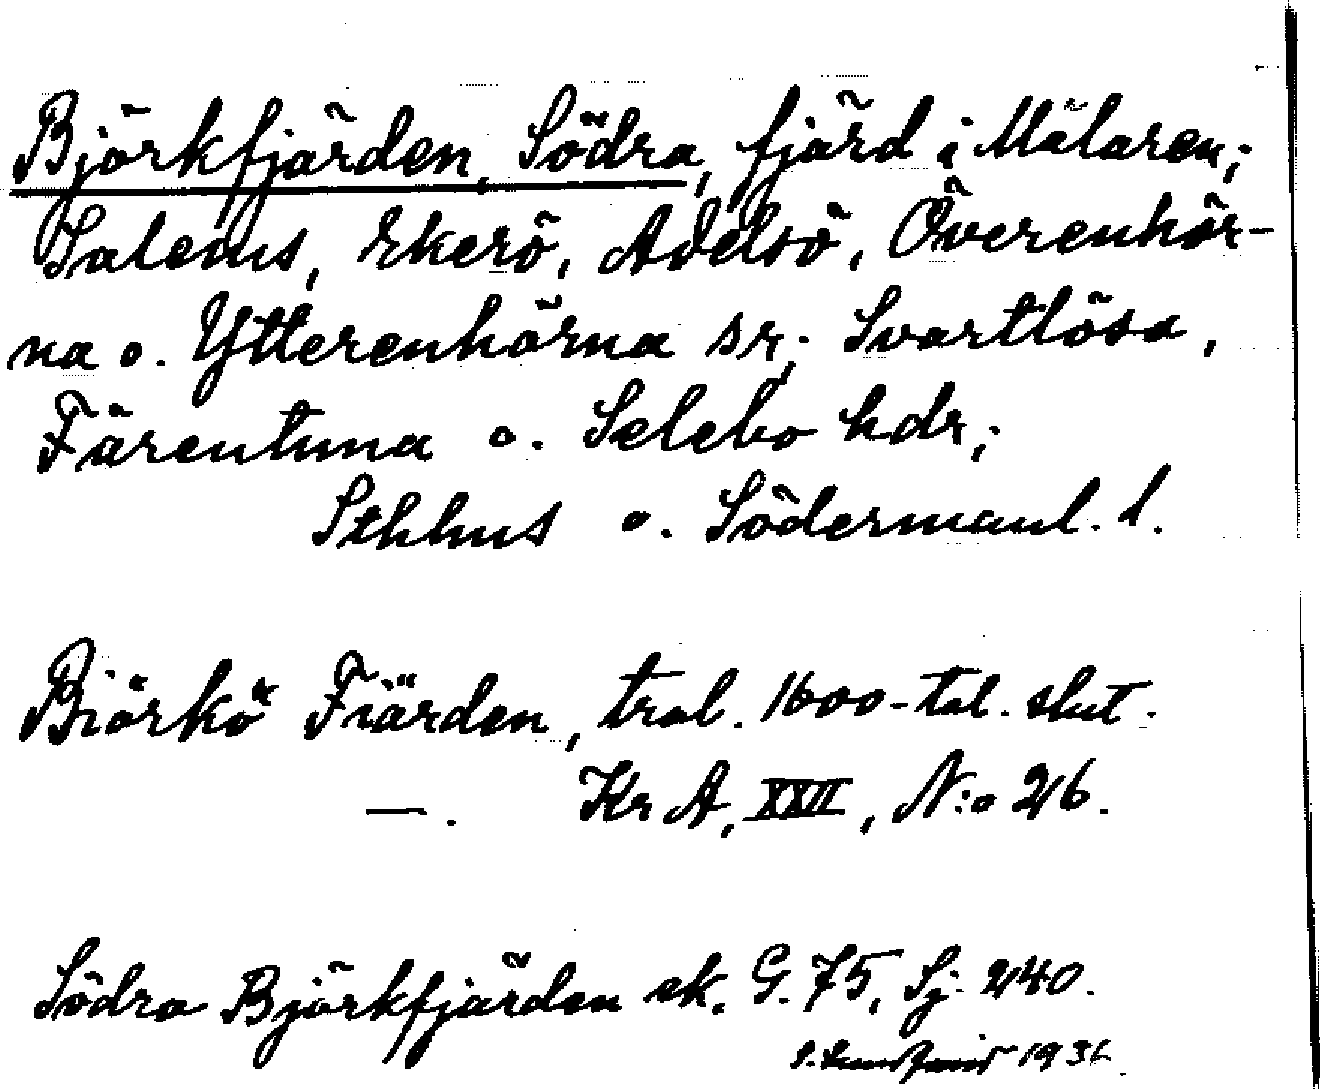 Björkfjärden, Södra, fjärd i Mälaren;
Salems, Ekerö, Adelsö, Överenhör-
na o. Ytterenhörna sr; Svartlösa,
Färentuna o. Selebo hdr;
Sthlms o. Södermanl. l.
Biörkö Fiärden, tral. 1600-tal. slut.
—. Kr A, XXII, N:o 26.
Södra Björkfjärden ek. G. 75, Sj. 240.
1936